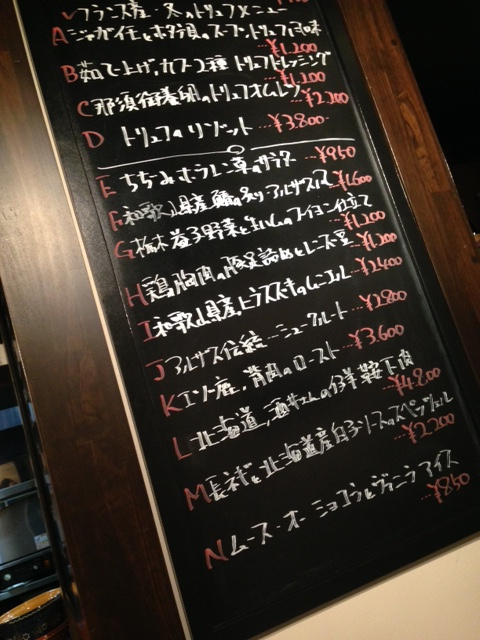 フランス産・冬のトリュフメニュー
A ジャガイモとホタテ貝のスープ、トリュフ風味
…¥1.200
B 茹で上げ、カブ2種 トリュフドレッシング
…¥1.200
C 那須御養卵のトリュフオムレツ …¥2.200
D トリュフのリゾット …¥3.800
E ちぢみホウレン草のサラダ …¥950
F 和歌山県産 鰆の炙り アルザス …¥1.600
G 栃木 益子野菜と生ハムのブイヨン仕立て
…¥1.200
H 鶏胸肉の豚足詰めとレンズ豆 …¥1.200
I 和歌山県産ヒラスズキのムニエル …¥2.400
J アルザス伝統 シュークルート …¥2.800
K エゾ鹿、背肉のロースト …¥3.600
L 北海道、酒井さんの仔羊鞍下肉
…¥4.800
M 長ネギと北海道産白子ソースのスペッツレ
…¥2.200
N ムース・オー・ショコラとヴァニラアイス
…¥850